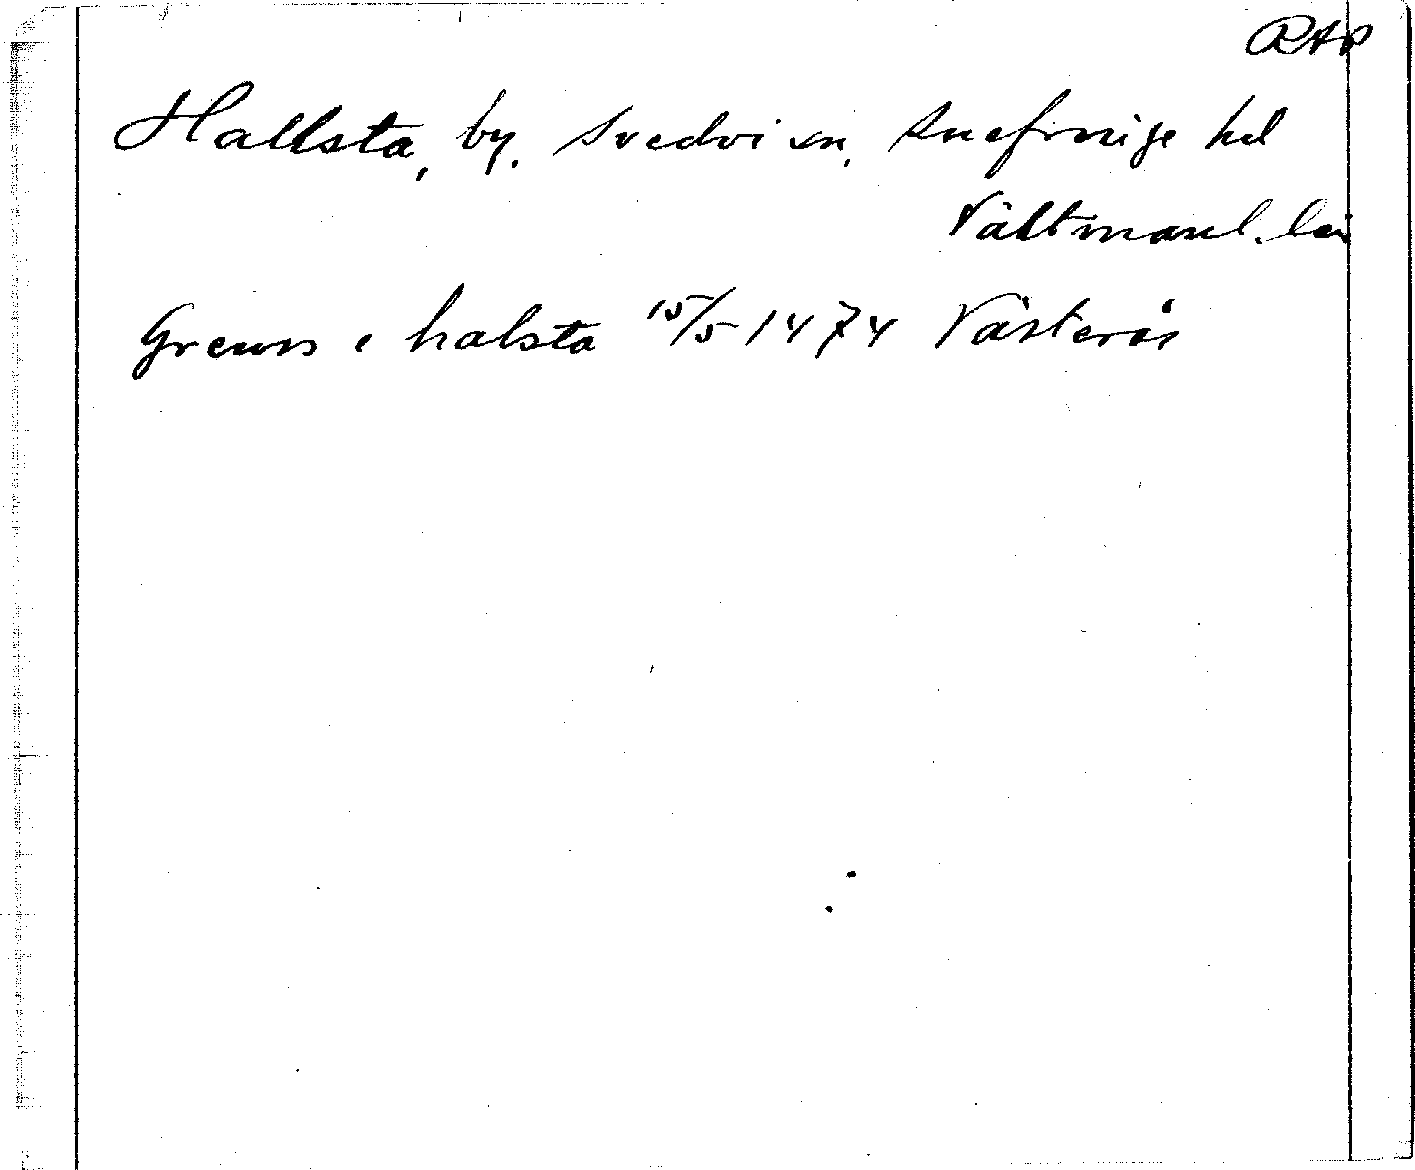 RAP
Hallsta, by, Svedvi sn, Snefringe hd
Västmanl. län
Greuss i halsta 15/5 1474 Västerås